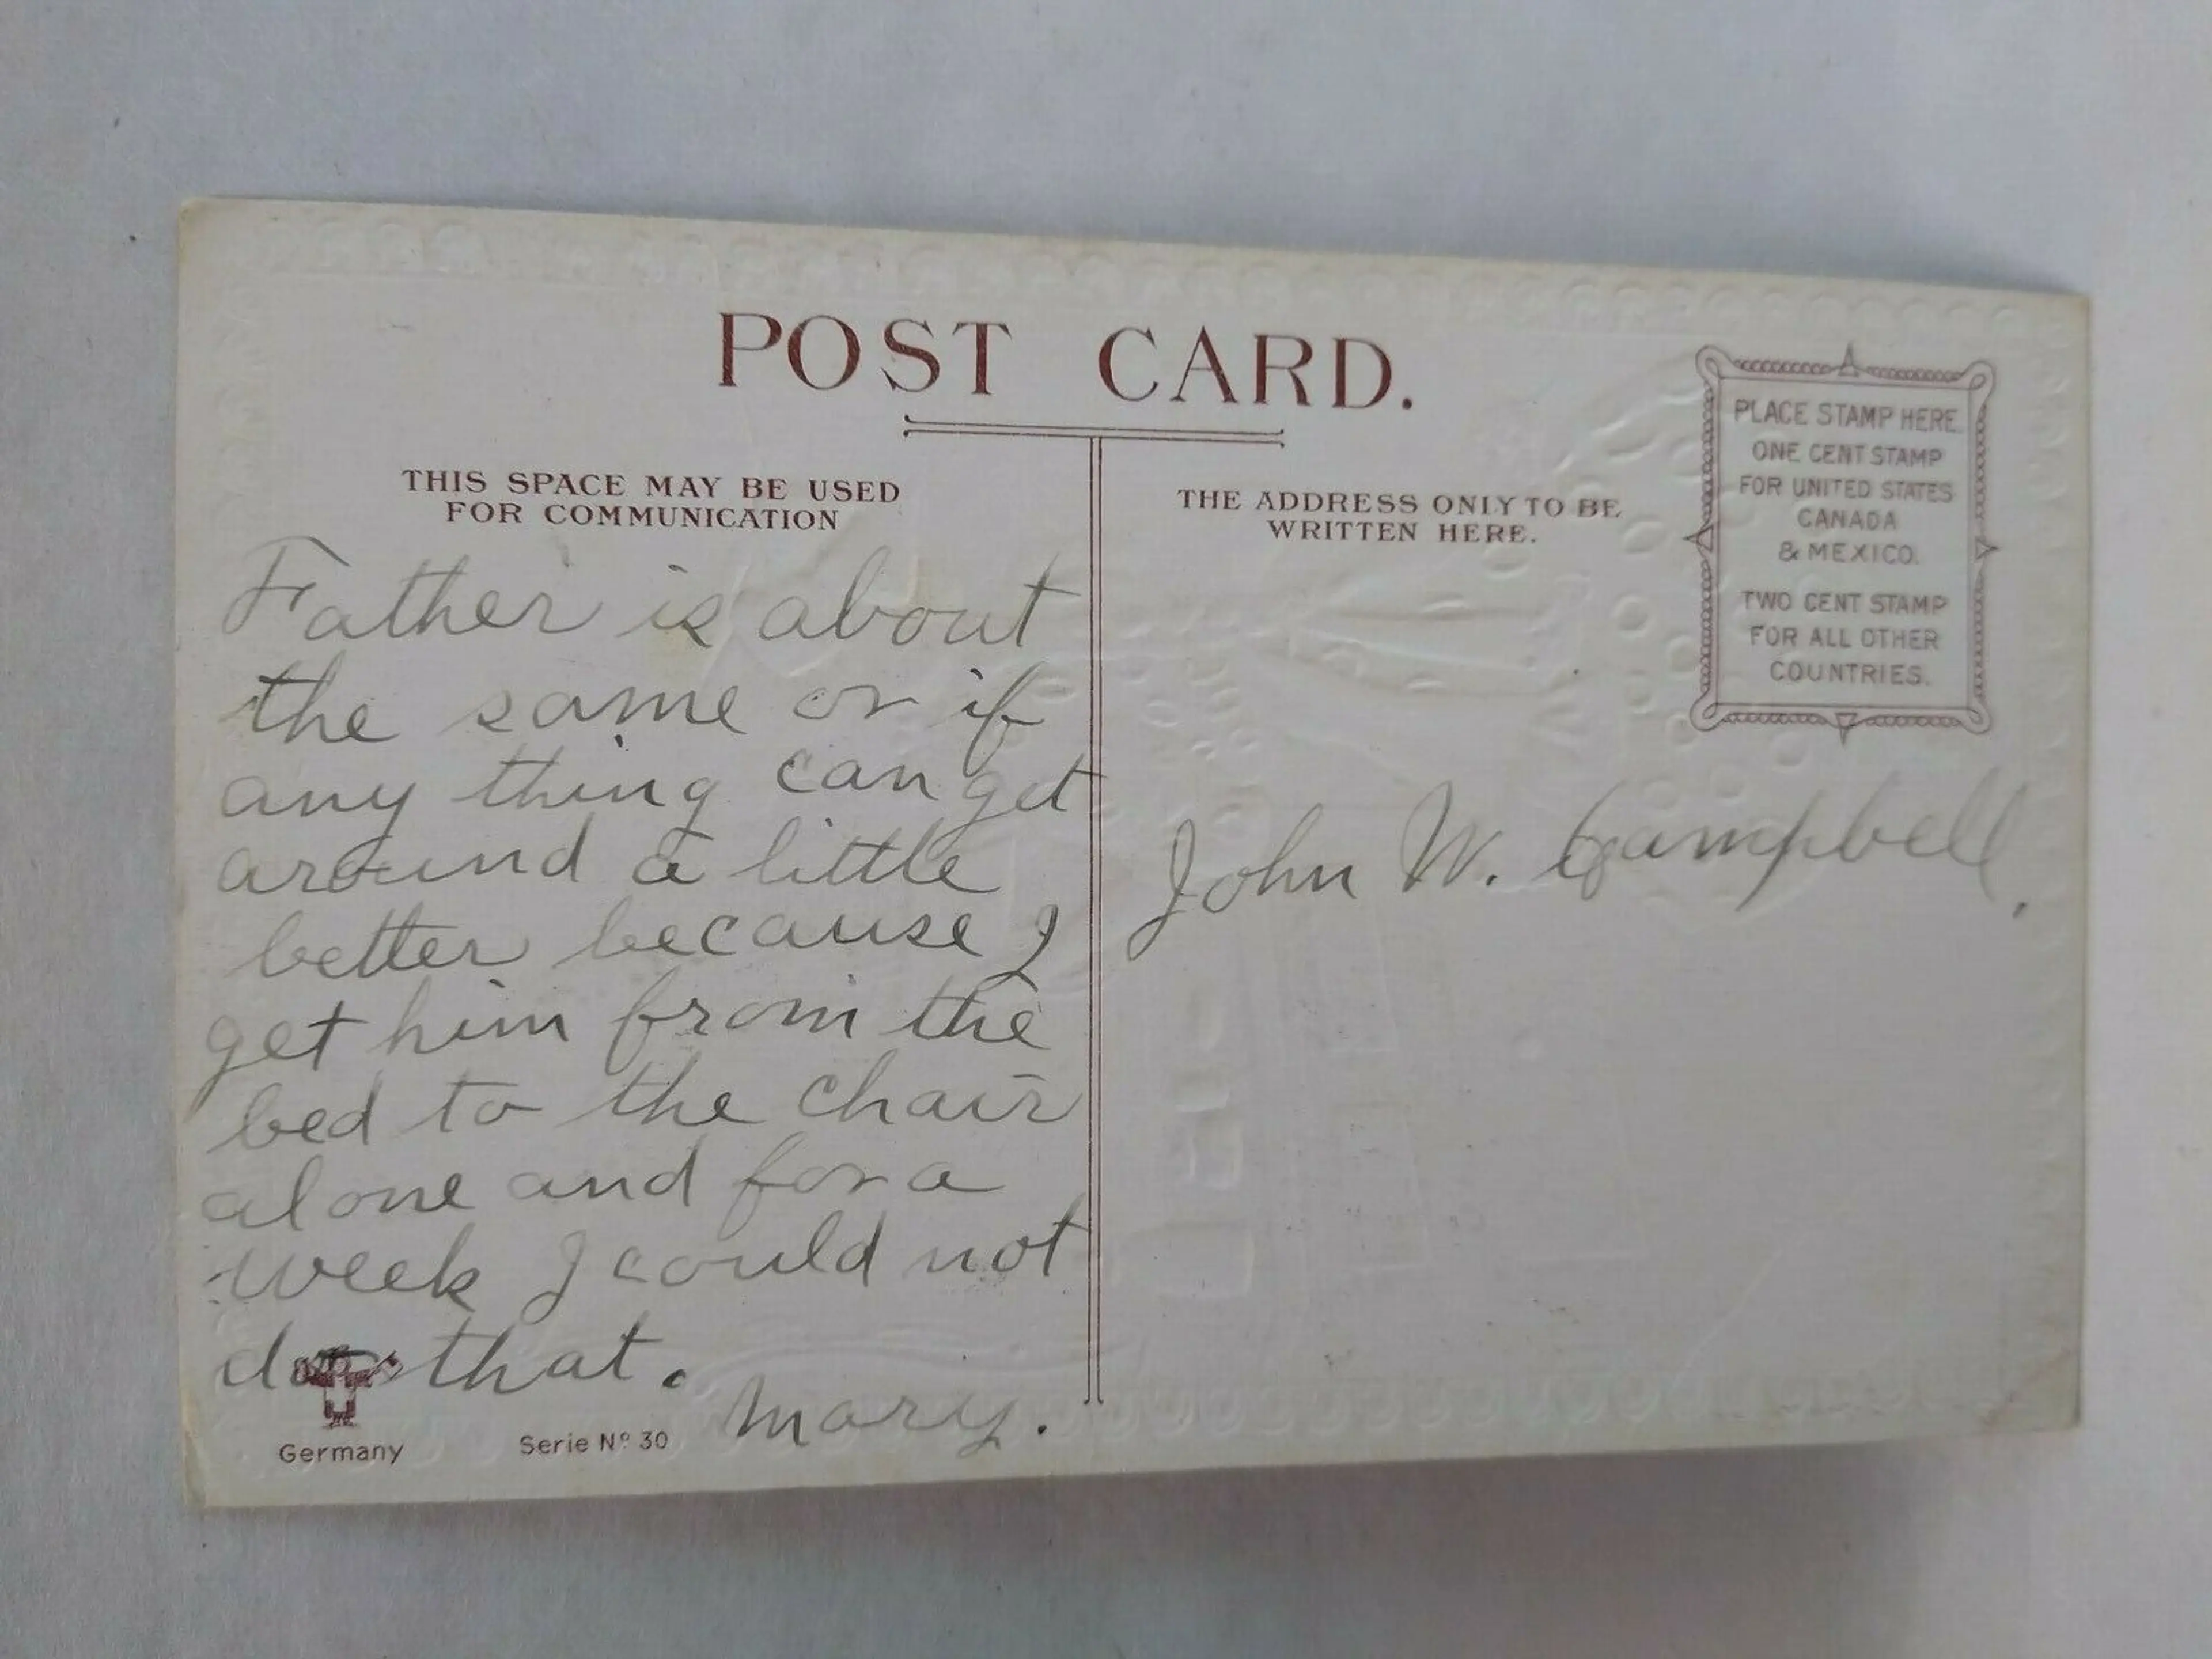 POST CARD.
THIS SPACE MAY BE USED
FOR COMMUNICATION
Father is about
the same or if
any thing can get
around a little
better because I
get him from the
bed to the chair
alone and for a
week I could not
do that.
Mary.
Germany
Serie Nº 30
THE ADDRESS ONLY TO BE
WRITTEN HERE.
PLACE STAMP HERE.
ONE CENT STAMP
FOR UNITED STATES
CANADA
& MEXICO.
TWO CENT STAMP
FOR ALL OTHER
COUNTRIES.
John W. Campbell,